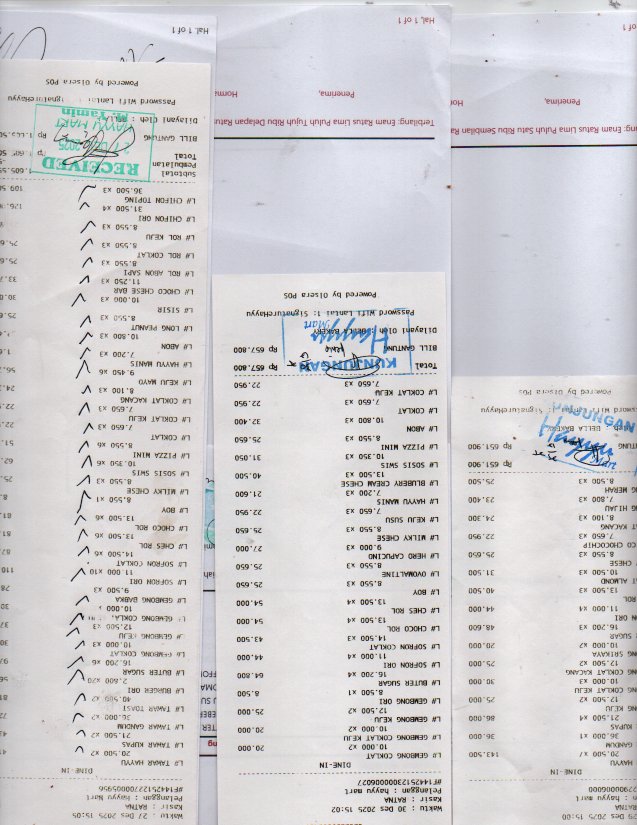 29 Des 2025 15:00
RATNA
: hayyu mart
DINE-IN
HAYYU
20.500 x7 143.500
GANDUM
36.000 x1 36.000
KUPAS
21.500 x4 86.000
NG KEJU
12.500 x2 25.000
NG COKLAT KEJU
10.000 x3 30.000
NG COKLAT KACANG
12.500 x2 25.000
NG SRIKAYA
10.000 x2 20.000
SUGAR
16.200 x3 48.600
ORI
11.000 x4 44.000
ROL
13.500 x3 40.500
T ALMOND
10.500 x3 31.500
CHEESE
8.550 x3 25.650
CO CHOCOCHIP
7.650 x3 22.950
T KACANG
8.100 x3 24.300
NG HIJAU
7.800 x3 23.400
NG MERAH
8.500 x3 25.500
Rp 651.900
NTUNG Rp 651.900
BELLA BAKERY
Wifi Lantai 1: Signaturehayyu
Powered by Olsera POS
KUNJUNGAN
Hayyu
Mart
Terbilang: Enam Ratus Lima Puluh Satu Ribu Sembilan Ra
Penerima,
Hor
Hal, 1 of 1
Waktu : 30 Des 2025 15:02
Kasir : RATNA
Pelanggan : hayyu mart
#F1442512300006027
DINE-IN
L# GEMBONG COKLAT
10.000 x2 20.000
L# GEMBONG KEJU COKLAT
10.000 x2 20.000
L# GEMBONG KEJU
12.500 x2 25.000
L# GEMBONG ORI
8.500 x1 8.500
L# BUTER SUGAR
16.200 x4 64.800
L# SOFRON ORI
11.000 x4 44.000
L# SOFRON COKLAT
14.500 x3 43.500
L# CHOCO ROL
13.500 x4 54.000
L# CHES ROL
13.500 x4 54.000
L# BOY
8.550 x3 25.650
L# OVOMALTINE
8.550 x3 25.650
L# HERO CAPUCING
9.000 x3 27.000
L# MILKY CHESE
8.550 x3 25.650
L# KEJU SUSU
7.650 x3 22.950
L# HAYYU MANIS
7.200 x3 21.600
L# BLUBERY CREAM CHESE
13.500 x3 40.500
L# SOSIS SWIS
10.350 x3 31.050
L# PIZZA MINI
8.550 x3 25.650
L# ABON
10.800 x3 32.400
L# COKLAT
7.650 x3 22.950
L# COKLAT KEJU
7.650 x3 22.950
Total Rp 657.800
BILL GANTUNG Rp 657.800
Dilayani Oleh : BELLA BAKERY
Password Wifi Lantai 1: Signaturehayyu
Powered by Olsera POS
KUNJUNGAN
Hayyu
Mart
Terbilang: Enam Ratus Lima Puluh Tujuh Ribu Delapan Ratus
Penerima,
Horma
Hal, 1 of 1
Waktu : 27 Des 2025 15:05
Kasir : RATNA
Pelanggan : hayyu mart
#F1442512270005956
DINE-IN
L# TAWAR HAYYU
20.500 x2
L# TAWAR KUPAS
21.500 x2
L# TAWAR GANDUM
36.000 x2
L# TAWAR TOAST
40.500 x2
L# BURGER ORI
L# BUTER SUGAR
16.200 x6
L# GEMBONG COKLAT
10.000 x3
L# GEMBONG KEJU
12.500 x3
L# GEMBONG COKLA
10.000
L# GEMBONG BABKA
9.500 x3
L# SOFRON ORI
11.000 x10
L# SOFRON COKLAT
14.500 x6
L# CHES ROL
13.500 x6
L# CHOCO ROL
13.500 x6
L# BOY
8.550 x1
L# MILKY CHESE
8.550 x3
L# SOSIS SWIS
10.350 x6
L# PIZZA MINI
8.550 x6
L# COKLAT
7.650 x3
L# COKLAT KEJU
7.650 x3
L# COKLAT KACANG
8.100 x3
L# KEJU MAYO
9.450 x6
L# HAYYU MANIS
7.200 x3
L# ABON
10.800 x3
L# LONG PEANUT
8.550 x3
L# SISIR
10.000 x3
L# CHOCO CHESE BAR
11.250 x3
L# ROL ABON SAPI
8.550 x3
L# ROL COKLAT
8.550 x3
L# ROL KEJU
8.550 x3
L# CHIFON ORI
31.500 x4
L# CHIFON TOPING
36.500 x3
Subtotal
Pembulatan
Total
BILL GANTUNG Rp
Dilayani Oleh : BELLA
Password Wifi Lantai 1: Signaturehayyu
Powered by Olsera POS
RECEIVED
2025
HAYYU MART
M. Tamin
Hal, 1 of 1